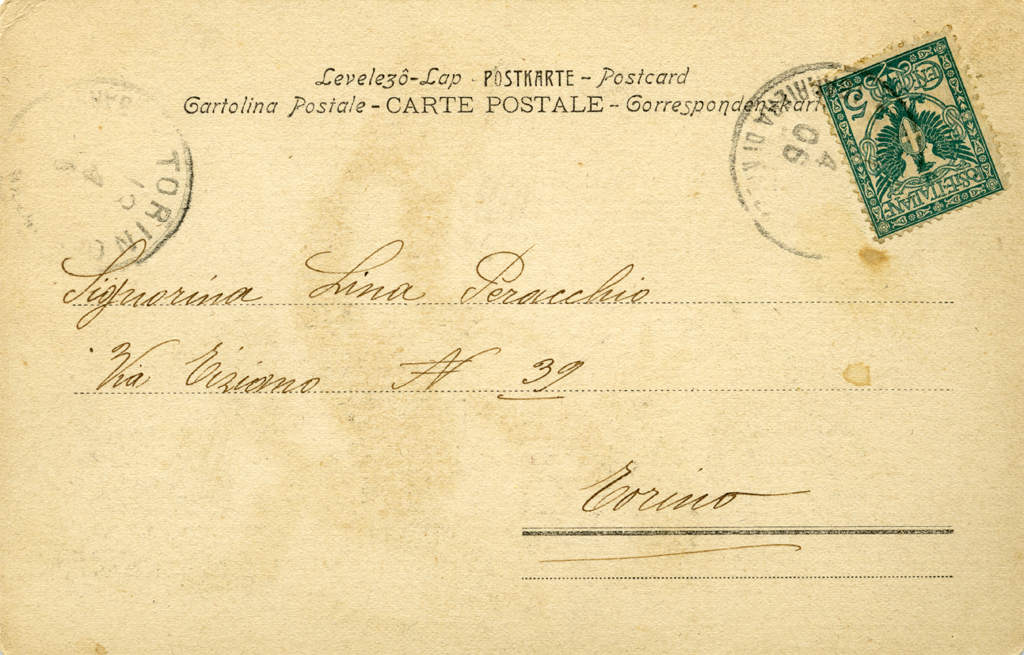 Levelező-Lap - POSTKARTE - Postcard
Cartolina Postale - CARTE POSTALE - Correspondenzkarte
POSTE ITALIANE
5
06
4
TORINO
Signorina Lina Peracchio
Via Tiziano N 39
Torino